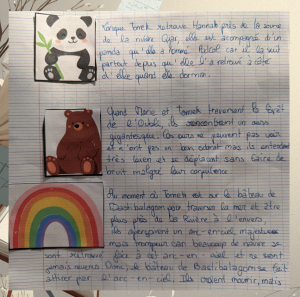 Lorsque Tomek retrouve Hannah près de la source
de la rivière Qjar, elle est accompagnée d'un
panda qu'elle a nommé car il la suit
partout depuis qu'elle l'a retrouvé à côté
d'elle quand elle dormait.
Quand Marie et Tomek traversent la forêt
de l'Oubli, ils rencontrent un ours
gigantesque. Ces ours ne peuvent pas voir
et n'ont pas un bon odorat mais ils entendent
très bien et se déplacent sans faire de
bruit malgré leur corpulence.
Au moment où Tomek est sur le bateau de
Bastibalagom pour traverser la mer et être
plus près de la Rivière à l'envers
ils aperçoivent un arc-en-ciel, majestueux
mais trompeur car beaucoup de navires se
sont retrouvés face à cet arc-en-ciel et ne sont
jamais revenus. Donc, le bateau de Bastibalagom se fait
attirer par l'arc-en-ciel, ils croient mourir, mais